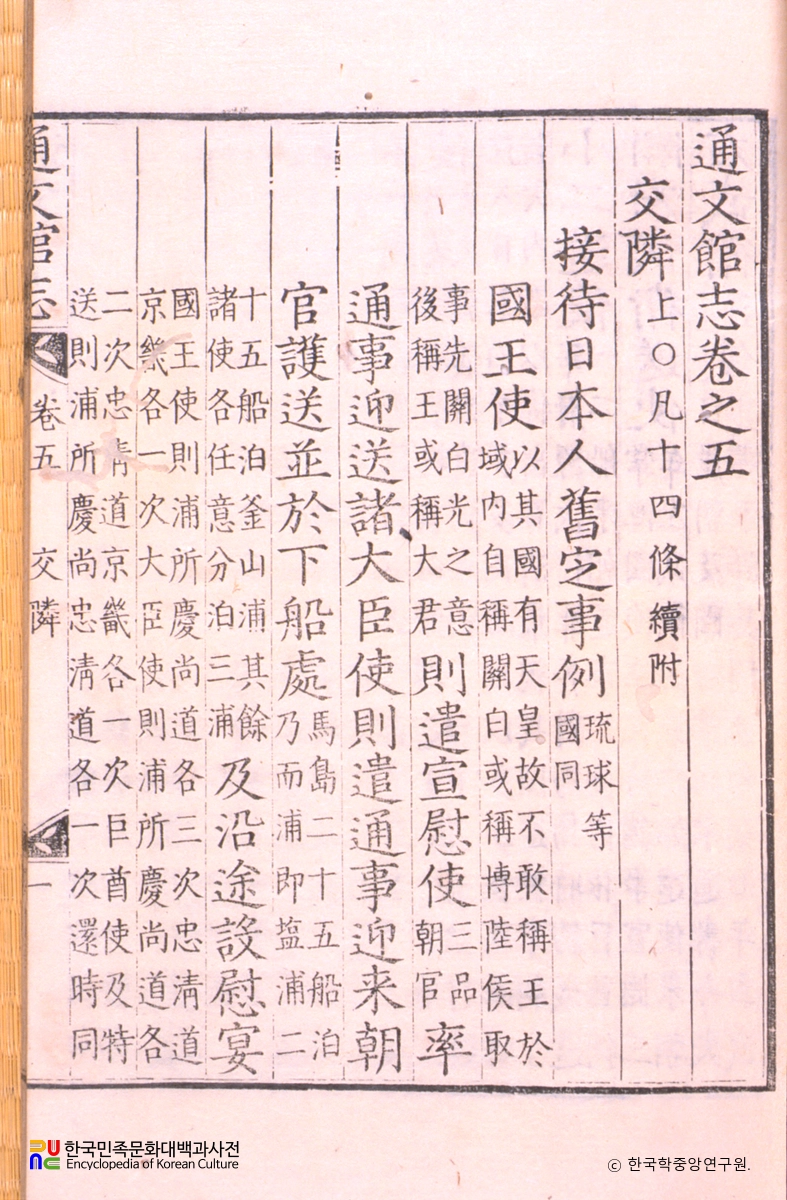 通文館志卷之五
交隣上○凡十四條續附
接待日本人舊㝎事例琉球等國同
國王使以其國有天皇故不敢稱王於域内自稱關白或稱博陸侯取
事先關白光之意後稱王或稱大君則遣宣慰使三品朝官率
通事迎送諸大臣使則遣通事迎来朝
官護送並於下船處馬島二十五船泊乃而浦即塩浦二
十五船泊釜山浦其餘諸使各任意分泊三浦及沿途設慰宴
國王使則浦所慶尚道各三次忠淸道京畿各一次大臣使則浦所慶尚道各
二次忠淸道京畿各一次巨酋使及特送則浦所慶尚忠淸道各一次還時同
通文館志 卷五 交隣 一
한국민족문화대백과사전
Encyclopedia of Korean Culture
ⓒ 한국학중앙연구원.